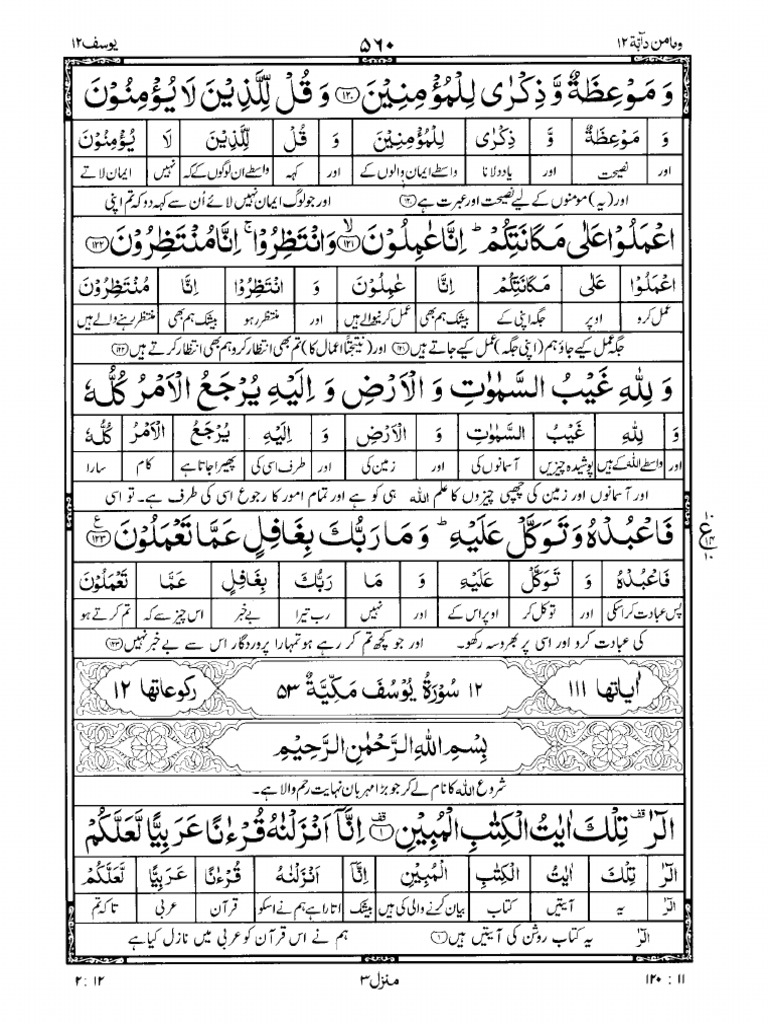 ومامن دآبة ۱۲ ۵۶۰ یوسف ۱۲
وَ مَوْعِظَةٌ وَّ ذِكْرٰى لِلْمُؤْمِنِيْنَ ﴿۱۲۰﴾ وَ قُلْ لِّلَّذِيْنَ لَا يُؤْمِنُوْنَ
وَ مَوْعِظَةٌ وَّ ذِكْرٰى لِلْمُؤْمِنِيْنَ وَ قُلْ لِّلَّذِيْنَ لَا يُؤْمِنُوْنَ
اور نصیحت اور یاد دلانا واسطے ایمان والوں کے اور کہہ واسطے ان لوگوں کے کہ نہیں ایمان لاتے
اور (یہ) مومنوں کے لیے نصیحت اور عبرت ہے ﴿۱۲۰﴾ اور جو لوگ ایمان نہیں لائے اُن سے کہہ دو کہ تم اپنی
اعْمَلُوْا عَلٰى مَكَانَتِكُمْ ؕ اِنَّا عٰمِلُوْنَ ﴿۱۲۱﴾ۙ وَانْتَظِرُوْا ۚ اِنَّا مُنْتَظِرُوْنَ ﴿۱۲۲﴾
اعْمَلُوْا عَلٰى مَكَانَتِكُمْ اِنَّا عٰمِلُوْنَ وَ انْتَظِرُوْا اِنَّا مُنْتَظِرُوْنَ
عمل کرو اوپر جگہ اپنی کے بیشک ہم بھی عمل کرنیوالے ہیں اور منتظر رہو بیشک ہم بھی منتظر رہنے والے ہیں
جگہ عمل کیے جاؤ ہم (اپنی جگہ) عمل کیے جاتے ہیں ﴿۱۲۱﴾ اور (نتیجۂ اعمال کا) تم بھی انتظار کرو ہم بھی انتظار کرتے ہیں ﴿۱۲۲﴾
وَ لِلّٰهِ غَيْبُ السَّمٰوٰتِ وَ الْاَرْضِ وَ اِلَيْهِ يُرْجَعُ الْاَمْرُ كُلُّهٗ
وَ لِلّٰهِ غَيْبُ السَّمٰوٰتِ وَ الْاَرْضِ وَ اِلَيْهِ يُرْجَعُ الْاَمْرُ كُلُّهٗ
اور واسطے اللہ کے ہیں پوشیدہ چیزیں آسمانوں کی اور زمین کی اور طرف اسی کی پھیرا جاتا ہے کام سارا
اور آسمانوں اور زمین کی چھپی چیزوں کا علم اللہ ہی کو ہے اور تمام امور کا رجوع اسی کی طرف ہے۔ تو اسی
فَاعْبُدْهُ وَ تَوَكَّلْ عَلَيْهِ ؕ وَ مَا رَبُّكَ بِغَافِلٍ عَمَّا تَعْمَلُوْنَ ﴿۱۲۳﴾ع
۱۰ ع ۱۴ ۱۰
فَاعْبُدْهُ وَ تَوَكَّلْ عَلَيْهِ وَ مَا رَبُّكَ بِغَافِلٍ عَمَّا تَعْمَلُوْنَ
پس عبادت کر اسکی اور توکل کر اوپر اس کے اور نہیں رب تیرا بے خبر اس چیز سے کہ تم کرتے ہو
کی عبادت کرو اور اسی پر بھروسہ رکھو۔ اور جو کچھ تم کر رہے ہو تمہارا پروردگار اس سے بے خبر نہیں ﴿۱۲۳﴾
اٰیاتها ۱۱۱ ۱۲ سُوْرَةُ يُوْسُفَ مَكِّيَّةٌ ۵۳ رکوعاتها ۱۲
بِسْمِ اللهِ الرَّحْمٰنِ الرَّحِيْمِ
شروع اللہ کا نام لے کر جو بڑا مہربان نہایت رحم والا ہے۔
الٓرٰ ۫ تِلْكَ اٰيٰتُ الْكِتٰبِ الْمُبِيْنِ ﴿۱﴾۫ اِنَّاۤ اَنْزَلْنٰهُ قُرْءٰنًا عَرَبِيًّا لَّعَلَّكُمْ
الٓرٰ تِلْكَ اٰيٰتُ الْكِتٰبِ الْمُبِيْنِ اِنَّاۤ اَنْزَلْنٰهُ قُرْءٰنًا عَرَبِيًّا لَّعَلَّكُمْ
الٓرٰ یہ آیتیں کتاب بیان کرنے والی کی ہیں بیشک اتارا ہے ہم نے اسکو قرآن عربی تاکہ تم
الٓرٰ یہ کتاب روشن کی آیتیں ہیں ﴿۱﴾ ہم نے اس قرآن کو عربی میں نازل کیا ہے
۱۱ : ۱۲۰ منزل ۳ ۱۲ : ۲